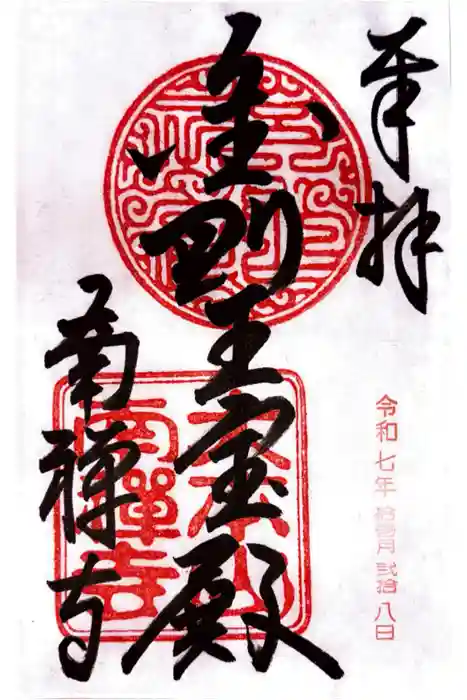 奉拝
令和七年 拾壱月 弐拾八日
金剛王宝殿
大本山
南禅寺
南禅寺